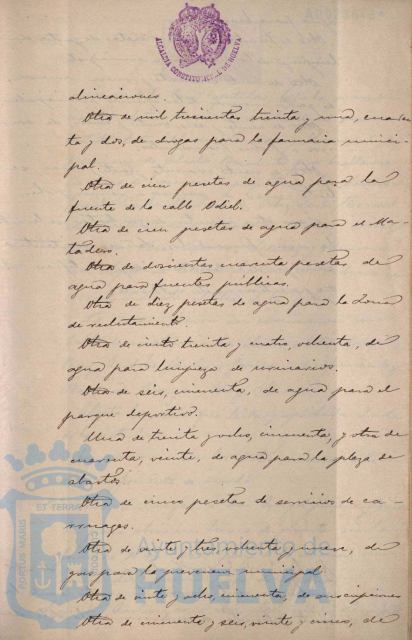 ALCALDIA CONSTITUCIONAL DE HUELVA
alineaciones.
Otra de mil trescientas treinta y una, cuaren-
ta y dos, de drogas para la farmacia munici-
pal.
Otra de cien pesetas de agua para la
fuente de la calle Odiel.
Otra de cien pesetas de agua para el Ma-
tadero.
Otra de doscientas cuarenta pesetas de
agua para fuentes públicas.
Otra de diez pesetas de agua para la Zona
de reclutamiento.
Otra de ciento treinta y cuatro, ochenta, de
agua para limpieza de urinarios.
Otra de seis, cincuenta, de agua para el
parque deportivo.
Una de treinta y ocho, cincuenta, y otra de
cuarenta, veinte, de agua para la plaza de
abastos.
Otra de cinco pesetas de servicios de ca-
rruages.
Otra de veinte y tres, ochenta y nueve, de
gas para la prevencion municipal
Otra de veinte y ocho, cincuenta, de suscripciones
Otra de cincuenta y seis, veinte y cinco, de
PORTUS MARIS ET TERRAE CUSTODIA
Ayuntamiento de
HUELVA